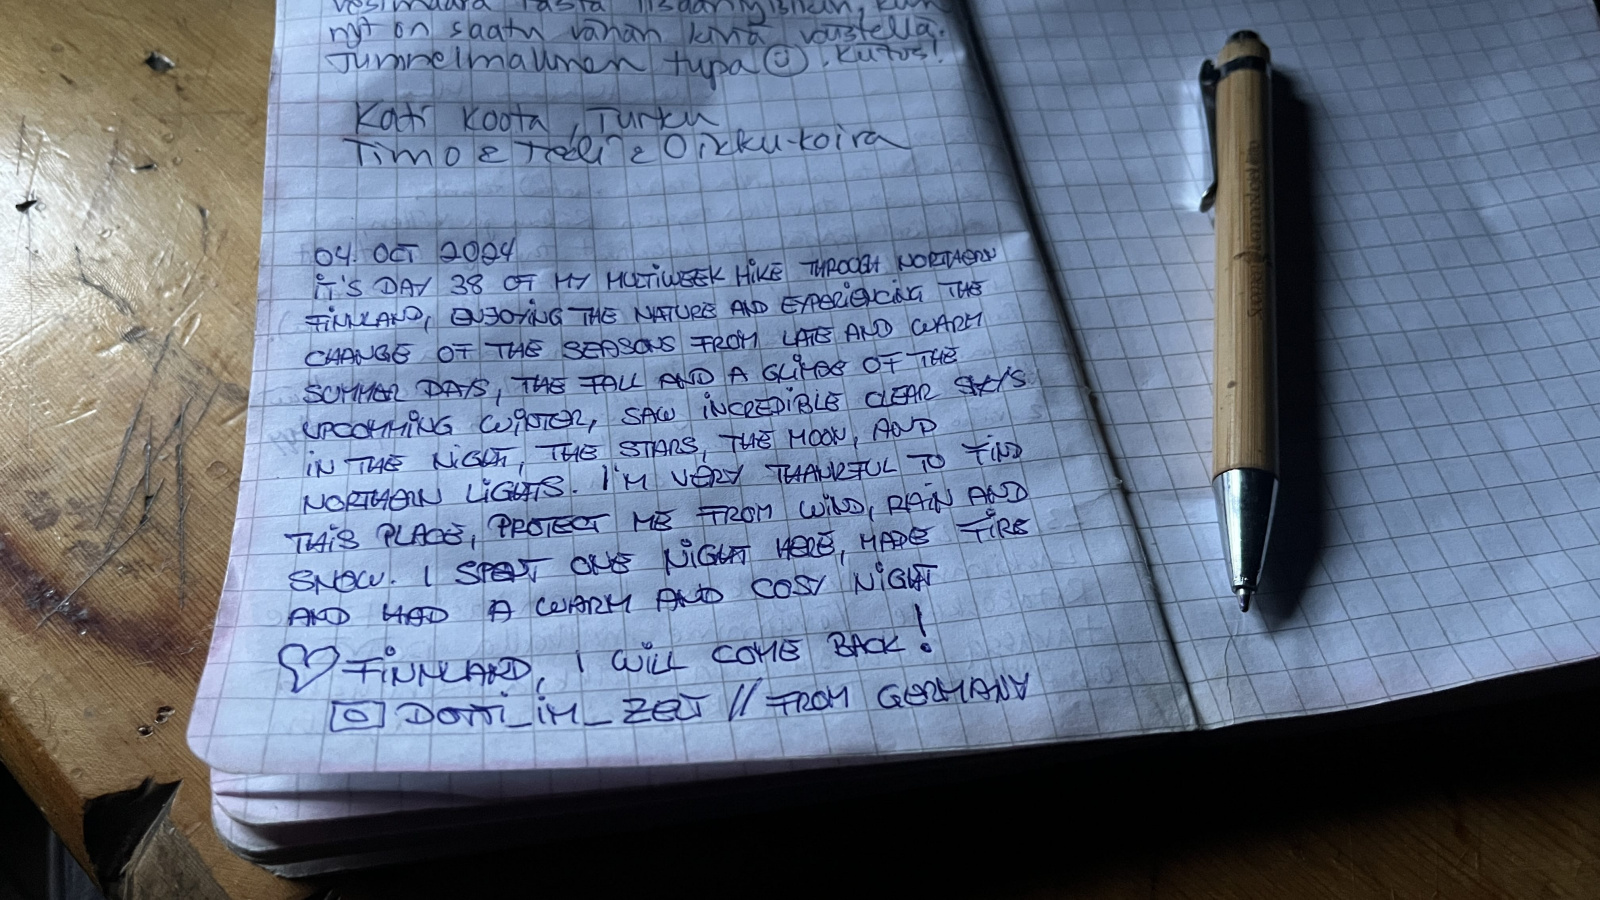 vesimäärä tästä lisääntyisikin, kun
nyt on saatu vähän kiviä väistellä.
Tunnelmallinen tupa ☺. Kiitos!
Kati Koota, Turku
Timo & & Oikku-koira
04. OCT 2024
IT'S DAY 38 OF MY MULTIWEEK HIKE THROUGH NORTHERN
FINNLAND, ENJOYING THE NATURE AND EXPERIENCING THE
CHANGE OF THE SEASONS FROM LATE AND WARM
SUMMER DAYS, THE FALL AND A GLIMSE OF THE
UPCOMMING WINTER, SAW INCREDIBLE CLEAR SKYS
IN THE NIGHT, THE STARS, THE MOON, AND
NORTHERN LIGHTS. I'M VERY THANKFUL TO FIND
THIS PLACE, PROTECT ME FROM WIND, RAIN AND
SNOW. I SPENT ONE NIGHT HERE, MADE FIRE
AND HAD A WARM AND COSY NIGHT
♡ FINNLAND, I WILL COME BACK!
DOTTI_IM_ZELT // FROM GERMANY